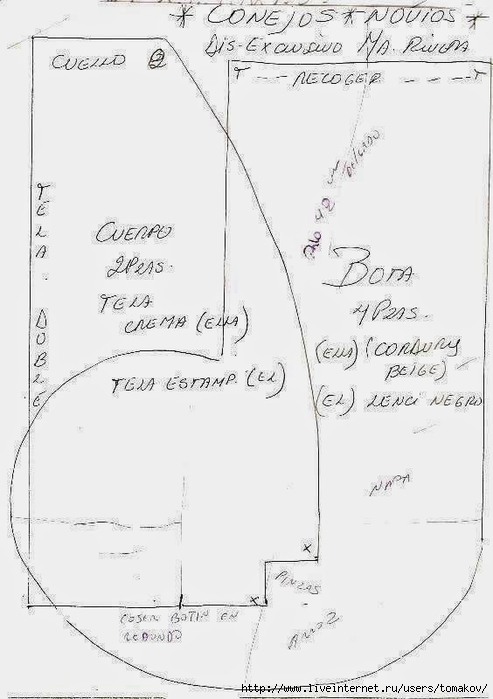 * CONEJOS * NOVIOS *
DIS-EXCLUSIVO MA. RIVERA
CUELLO 2
T --- RECOGER --- T
TELA DOBLE
CUERPO
2 PZAS.
TELA
CREMA (ELLA)
TELA ESTAMP. (EL)
Palo 42 cm
DELGADO
BOTA
4 PZAS.
(ELLA) (CORDURY
BEIGE)
(EL) LENCI NEGRO
NAPA
X
PINZAS
X
COSER BOTIN EN
REDONDO
ARROZ
http://www.liveinternet.ru/users/tomakov/